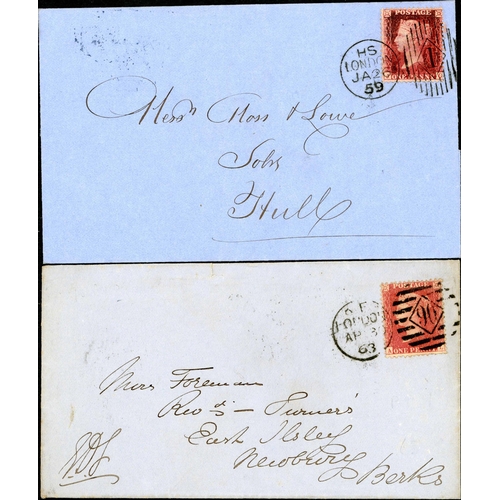 POSTAGE
HS
LONDON
JA 26
59
Messrs Moss & Lowe
Solrs
Hull
POSTAGE
LONDON
AP
63
90
ONE PE
Miss Foreman
Revd — Turner's
East Ilsley
Newbury
Berks